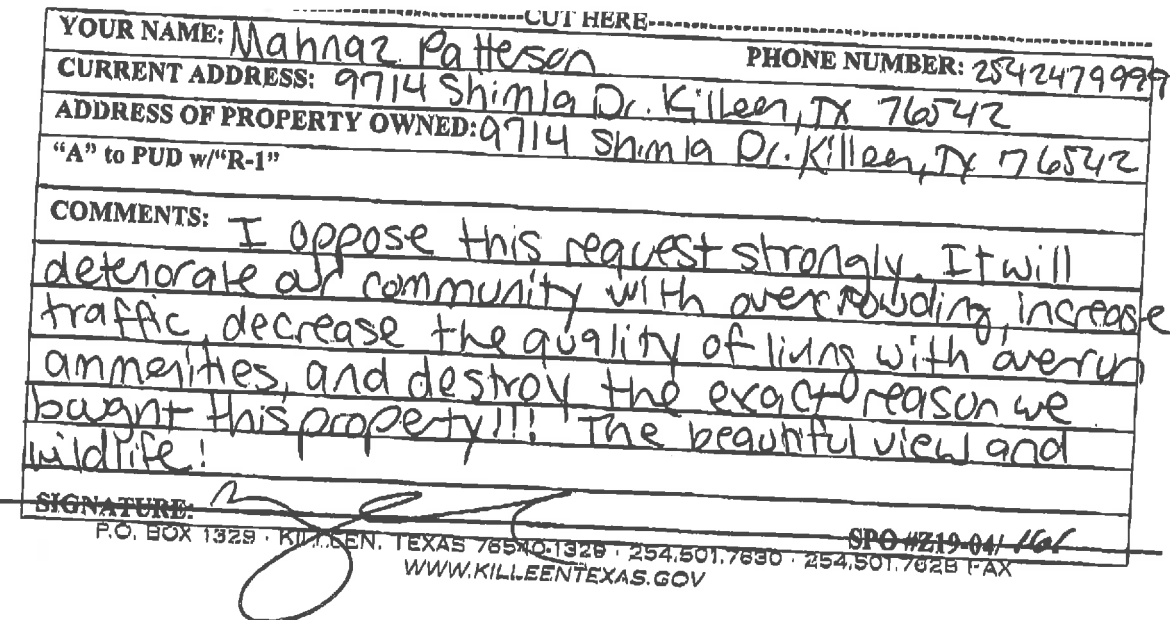 CUT HERE
YOUR NAME: Mahnaz Patterson PHONE NUMBER: 2542479999
CURRENT ADDRESS: 9714 Shimla Dr. Killeen, TX 76542
ADDRESS OF PROPERTY OWNED: 9714 Shimla Dr. Killeen, TX 76542
“A” to PUD w/“R-1”
COMMENTS: I oppose this request strongly. It will
deteriorate our community with overcrowding, increase
traffic, decrease the quality of living with overrun
ammenities, and destroy the exact reason we
bought this property!!! The beautiful view and
wildlife!
SIGNATURE: SPO #Z19-04/
P.O. BOX 1329 · KILLEEN, TEXAS 76540-1329 · 254.501.7630 · 254.501.7628 FAX
WWW.KILLEENTEXAS.GOV